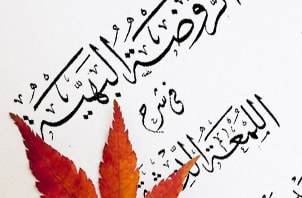 الروضة البهية
في شرح
اللمعة